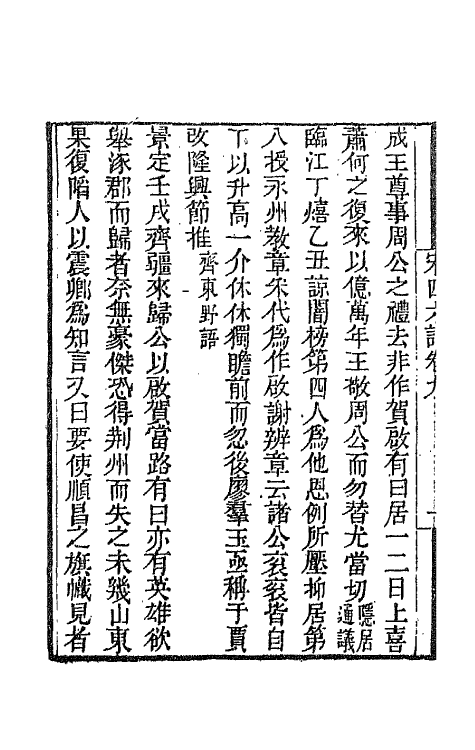 宋四六話卷九
成王尊事周公之禮去非作賀啟有曰居一二日上喜
蕭何之復來以億萬年王敬周公而勿替尤當切隱居通議
臨江丁熺乙丑諒闇榜第四人爲他恩例所壓抑居第
入授永州教章朱代爲作啟謝辨章云諸公衮衮皆自
下以升高一介休休獨瞻前而忽後廖羣玉亟稱于賈
改隆興節推齊東野語
景定壬戌齊疆來歸公以啟賀當路有曰亦有英雄欲
舉涿郡而歸者奈無豪傑恐得荆州而失之未幾山東
果復陷人以震卿爲知言又曰要使順昌之旗幟見者